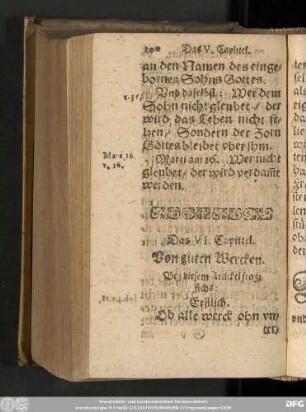 200 Das V. Capittel.
an den Namen des einge-
bornen Sohns Gottes.
v. 36. Vnd daselbst: Wer dem
Sohn nicht gleubet / der
wird das Leben nicht se-
hen / Sondern der Zorn
Gottes bleibet vber ihm.
Marc. 16. Marci am 16. Wer nicht
v. 16. gleubet / der wird verdampt
werden.
Das VI. Capittel.
Von guten Wercken.
Bey diesem Artickel fragt
sichs:
Erstlich.
Ob alle werck ohn vn-
ter